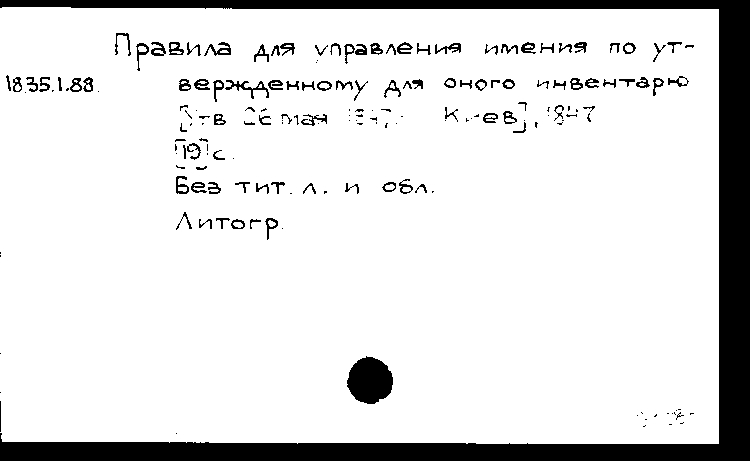 Правила для управления имения по ут-
1835.1.88. вержденному для оного инвентарю
[Утв 26 мая 1847. Киев], 1847
[19] с.
Без тит. л. и обл.
Литогр.